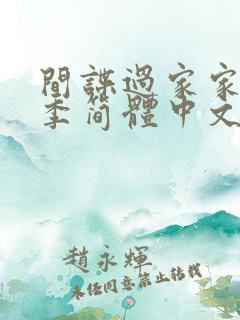 間諜過家家
季簡體中文
趙永輝
未經同意禁止轉載